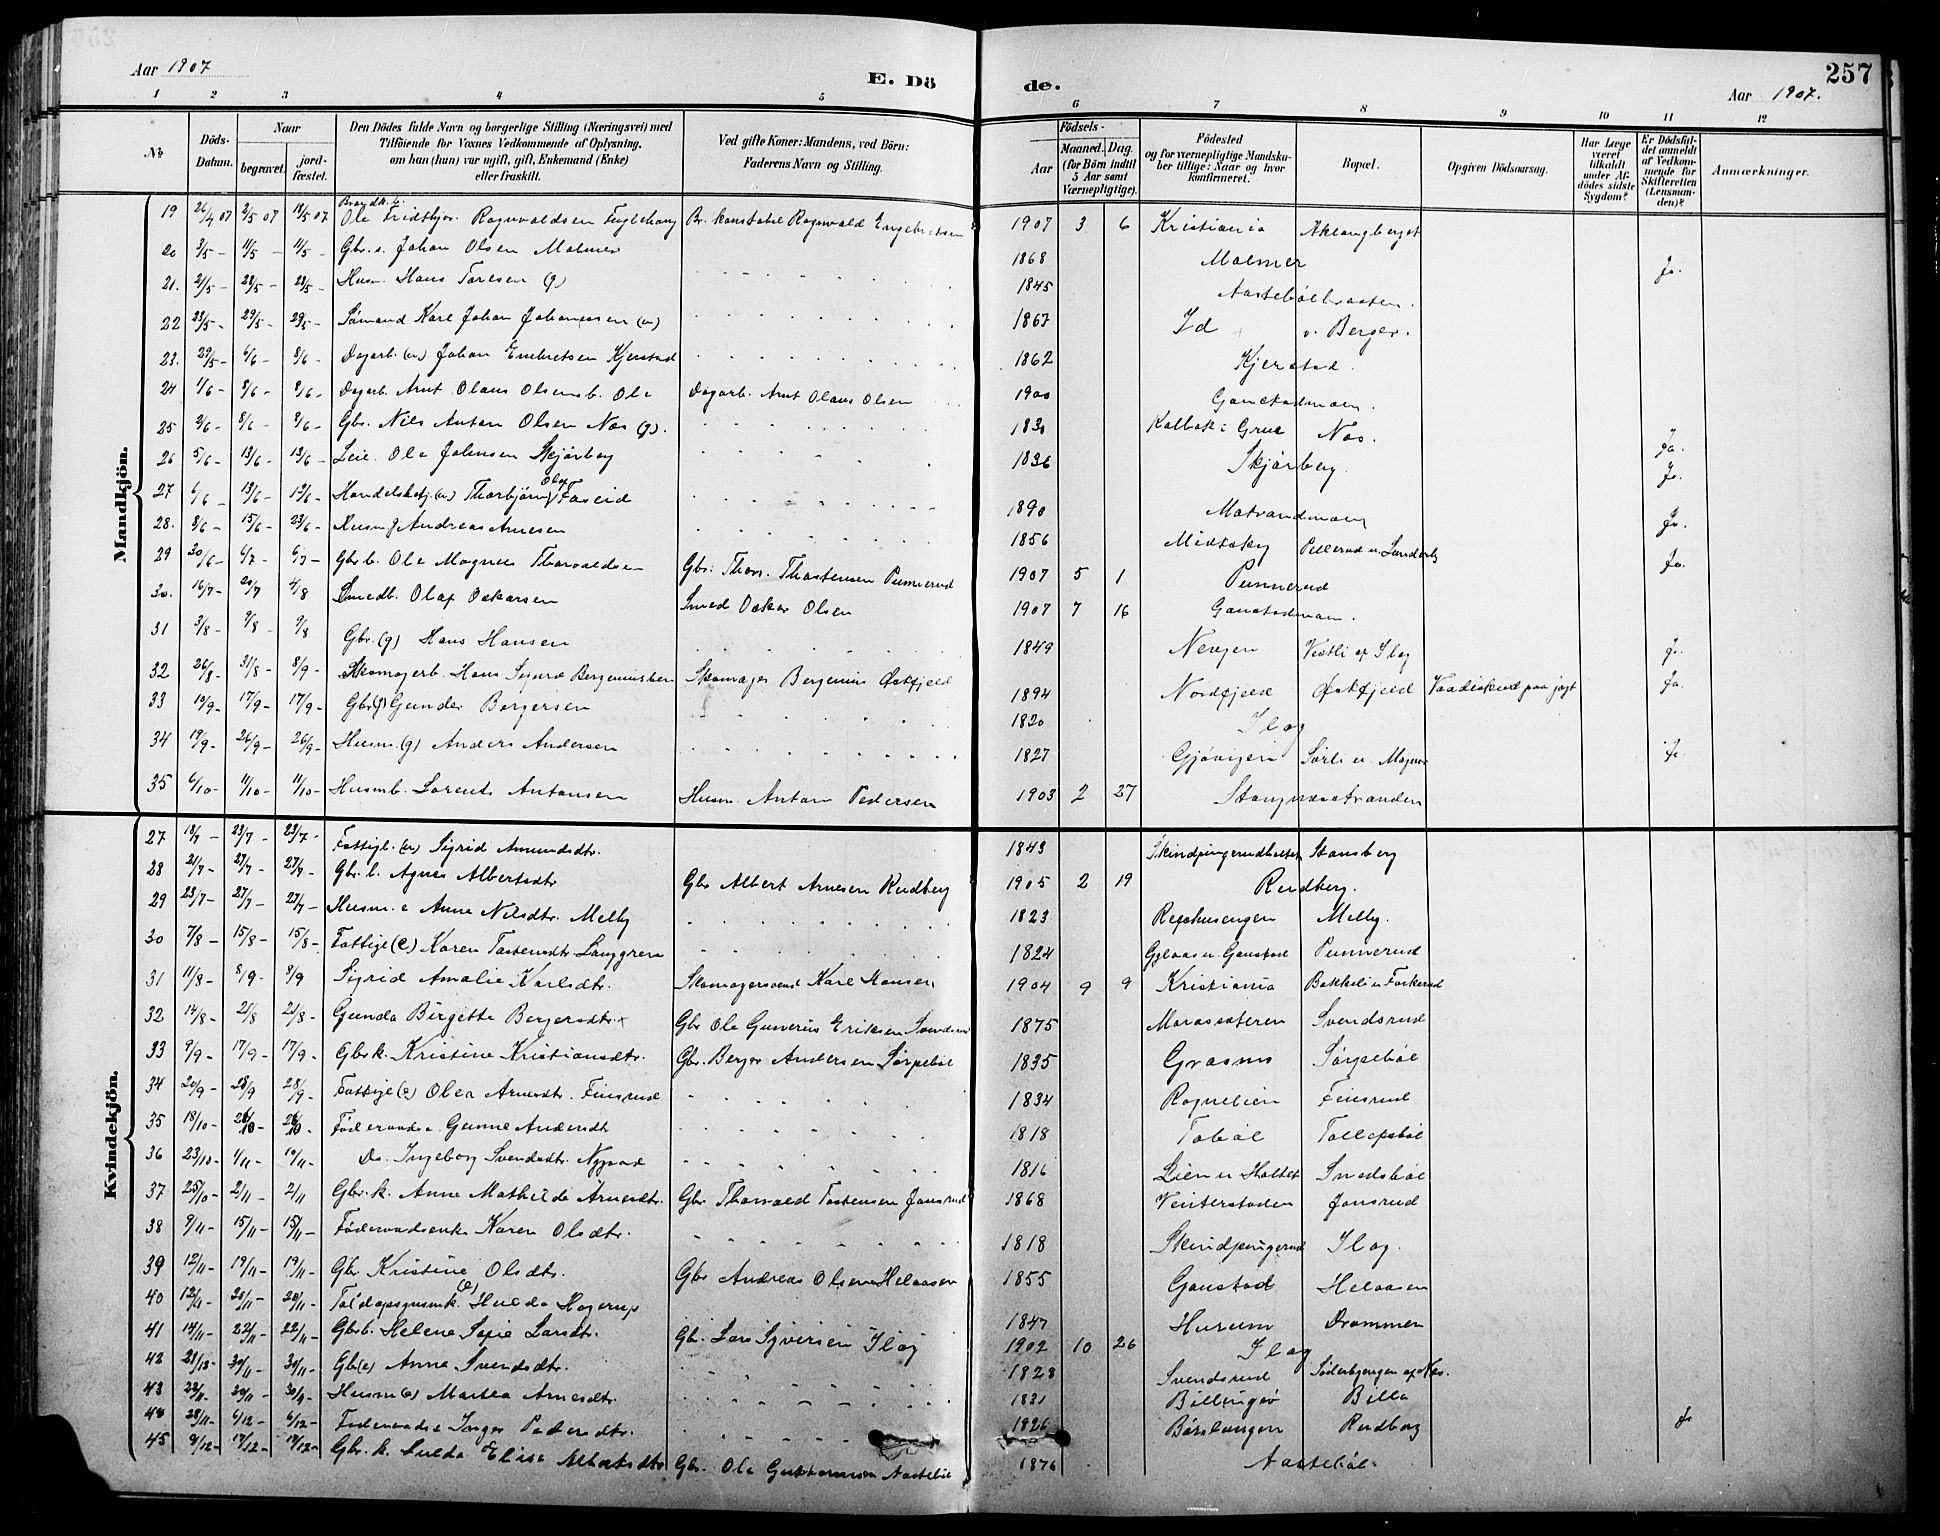 Aar 1907
E. Dö de.
257
Aar 1907.
1 2 3 4 5 6 7 8 9 10 11 12
No
Döds-Datum.
Naar
begravet.
jord-fæstet.
Den Dödes fulde Navn og borgerlige Stilling (Næringsvei) med
Tilföiende for Voxnes Vedkommende af Oplysning,
om han (hun) var ugift, gift, Enkemand (Enke)
eller fraskilt.
Ved gifte Koner: Mandens, ved Börn:
Faderens Navn og Stilling.
Födsels-
Aar
Maaned. Dag.
(for Börn indtil
5 Aar samt
Værnepligtige).
Födested
og for værnepligtige Mandska-
ber tillige: Naar og hvor
konfirmeret.
Bopæl.
Opgiven Dödsaarsag.
Har Læge
været
tilkaldt
under Af-
dödes sidste
Sygdom?
Er Dödsfal-
det anmeldt
af Vedkom-
mende for
Skifteretten
(Lensman-
den)?
Anmærkninger.
Mandkjön.
19 26/4 07 2/5 07 19/5 07 Ole Fridthjor Ragnvaldsen Fuglehaug Br. konstabel Ragnvald Engebretsen 1907 3 6 Kristiania
20 3/5 - 11/5 - 11/5 - Gbr. s. Johan Olsen Malmer 1868 Malmer
21. 21/5 - 28/5 - 28/5 - Husm. Hans Toresen (g) 1845 Aastebölbraaten. Ja.
22 23/5 - 29/5 - 29/5 - Sømand Karl Johan Johannessen (u) 1867 Id v. Berger.
23. 29/5 - 6/6 - 8/6 - Dagarb. (u) Johan Embretsen Kjerstad 1862 Kjerstad.
24 1/6 - 8/6 - 8/6 - Dagarb. Arnt Olaus Olsens b. Ole Dagarb. Arnt Olaus Olsen 1900 Ganstadmoen.
25 2/6 - 8/6 - 8/6 - Gbr. Nils Anton Olsen Næs (g). 1830 Kalbak i Grue Næs. Ja.
26 5/6 - 13/6 - 13/6 - Leie. Ole Johnsen Skjørberg 1836 Skjørberg. Ja.
27 6/6 13/6 - 19/6 - Handelsbetj. (u) Thorbjørn Olaf Foseid 1890 Matrandmoen Ja.
28. 8/6 - 15/6 - 23/6 - Husm g Andreas Arnesen 1856 Midtsky Pellerud u. Sanderby Ja.
29 30/6 - 6/7 - 6/7 - Gbr b. Ole Magnus Thorvaldsen Gbr. Thorv. Thostensen Punnerud 1907 5 1 Punnerud
30. 16/7 - 20/7 4/8 Smedb. Olaf Oskarsen Smed Oskar Olsen 1907 7 16 Ganstadmoen.
31 3/8 - 9/8 - 9/8 Gbr. (g) Hans Hansen 1849 Nevgen Vestli af Ilag Ja.
32 26/8 - 31/8 - 8/9 - Skomagerb. Hans Sigurd Bergerniussen Skomager Bergenius Østfjeld 1894 Nordfjeld Østfjeld Vaadeskud paa jagt Ja.
33 10/9 - 17/9 - 17/9 - Gbr (g) Gunder Borgersen 1820 Ilag
34 19/9 - 26/9 - 26/9 - Husm. (g) Anders Andersen 1827 Gjøvigen Sørli u. Magnor Ja.
35 6/10 - 11/10 - 11/10 - Husmb. Lorents Antonsen Husm. Anton Pedersen 1903 2 27 Stangnæsstranden
Kvindekjön.
27 18/7 - 23/7 - 23/7 - Fattigl. (u) Sigrid Amundsdtr. 1843 Skindpungerudholtet Stansberg
28 21/7 - 27/7 - 27/7 - Gbr. b. Agnes Albertsdtr Gbr Albert Arnesen Rudberg 1905 2 19 Rudberg.
29 23/7 - 27/7 - 27/7 - Husm. e Anne Nilsdtr. Melby 1823 Melby.
30 7/8 - 15/8 - 15/8 - Fattigl (e) Karen Tostensdtr Langgren 1824 Punnerud
31 11/8 - 8/9 - 8/9 Sigrid Amalie Karlsdtr. Skomagersvend Karl Hansen 1904 9 9 Kristiania Bakkeli u Forkerud
32 14/8 - 21/8 21/8 - Gunda Birgitte Borgersdtr Gbr Ole Gunerius Eriksen Svendsrud 1875 Morassæteren Svendsrud
33 9/9 - 17/9 - 17/9 - Gbr k. Kristine Kristiansdtr. Gbr. Berger Andersen Sørpeböl 1835 Grasmo Sørpeböl
34 20/9 - 28/9 28/9 - Fattigl (e) Olea Arnesdtr. Finsrud 1834 Ragnelien Finsrud
35 18/10 - 26/10 - 26/10 - Föderaads e. Gunne Andersdtr 1818 Toböl Tollefsböl
36 23/10 - 4/11 - 10/11 - Do. Ingeborg Svendsdtr. Nygaard 1816 Lien u Holtet Smedsböl
37 25/10 - 2/11 - 2/11 Gbr. k. Anne Mathilde Arnesdtr. Gbr Thorvald Tostensen Jonsrud 1868 Vinterstaden Jonsrud
38 9/11 - 15/11 - 15/11 - Föderaadsenke Karen Olsdtr. 1818 Skindpungerud Ilag.
39 12/11 - 19/11 - 19/11 - Gbr Kristine Olsdtr. Gbr Andreas Olsen Helaasen 1855 Ganstad Helaasen
40 12/11 - 20/11 - 20/11 - Toldopsynsmk. (e) Hulda Hagerup 1847 Hurum Drammen
41 14/11 - 22/11 - 22/11 - Gbr b. Helene Sofie Larsdtr. Gbr. Lars Syversen Ilag 1902 10 26 Ilag
42 30/11 - 30/11 - Gb (e) Anna Svendsdtr. 1828 Svendsrud Söderbgengen af Næs.
43 22/11 - 30/11 - 30/11 - Husm (e) Martea Arnesdtr. 1831 Billingsö Billa
44 28/11 - 6/12 - 6/12 - Föderaads e Inger Pedersdtr. 1826 Börslungen Rudberg Ja
45 9/12 - 17/12 - 17/12 - Gbr. k. Hulda Elise Albertsdtr Gbr. Ole Guttormsen Aasteböl 1876 Aasteböl.